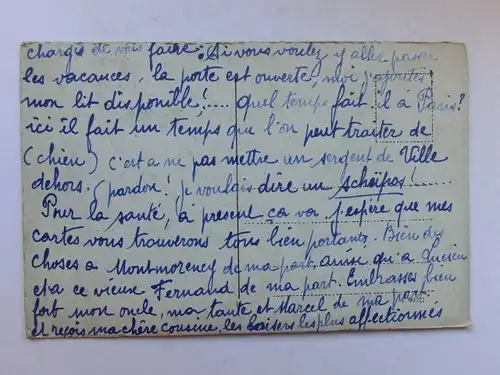 chargé de vous faire : Si vous voulez y aller passer
les vacances, la porte est ouverte, moi j'ajoute
mon lit disponible!.... quel temps fait il a Paris?
ici il fait un temps que l'on peut traiter de
(chien) c'est a ne pas mettre un sergent de Ville
dehors. (pardon! je voulais dire un scheïpos!......
Pour la santé, à présent ça va. j'espère que mes
cartes vous trouverons tous bien portants. Bien des
choses a Montmorency de ma part, ainsi qu'a Lucien
et a ce vieux Fernand de ma part. Embrasses bien
fort mon oncle, ma tante et Marcel de ma part
et reçois ma chère cousine, les baisers les plus affectionnés